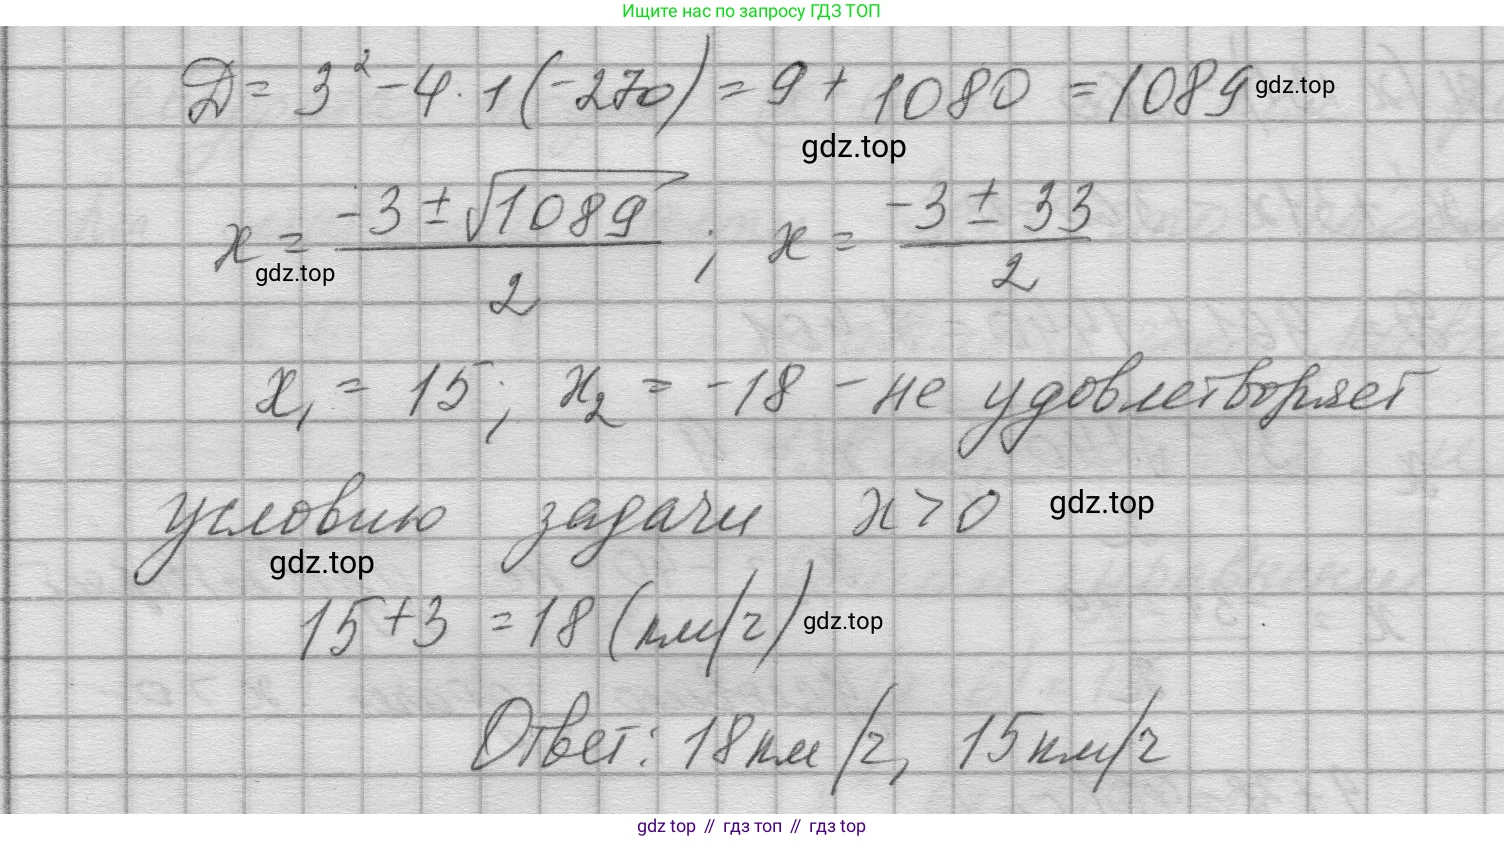 Ищите нас по запросу ГДЗ ТОП
Д = 3² - 4 · 1 (-270) = 9 + 1080 = 1089 gdz.top
gdz.top
x = (-3 ± √1089) / 2 ; x = (-3 ± 33) / 2
gdz.top
x₁ = 15 ; x₂ = -18 - не удовлетворяет
условию задачи x > 0 gdz.top
gdz.top
15 + 3 = 18 (км/ч) gdz.top
Ответ: 18 км/ч, 15 км/ч
gdz top // гдз топ // гдз top